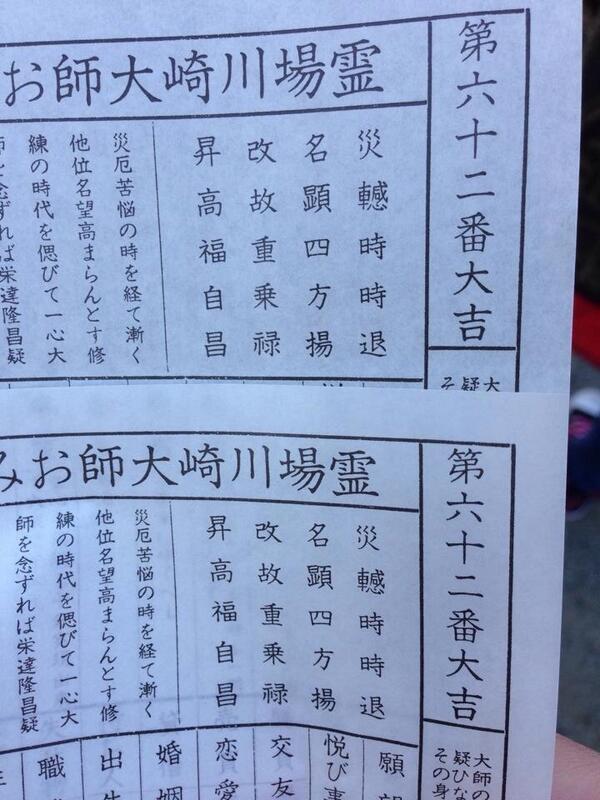 第六十二番大吉
霊場川崎大師お
災轗時時退
名顕四方揚
改故重乗禄
昇高福自昌
災厄苦悩の時を経て漸く
他位名望高まらんとす修
練の時代を偲びて一心大
師を念ずれば栄達隆昌疑
大
疑
そ
第六十二番大吉
霊場川崎大師おみ
災轗時時退
名顕四方揚
改故重乗禄
昇高福自昌
災厄苦悩の時を経て漸く
他位名望高まらんとす修
練の時代を偲びて一心大
師を念ずれば栄達隆昌疑
大師の
疑ひな
その身
願望
悦び事
交友
恋愛
婚姻
出生
職